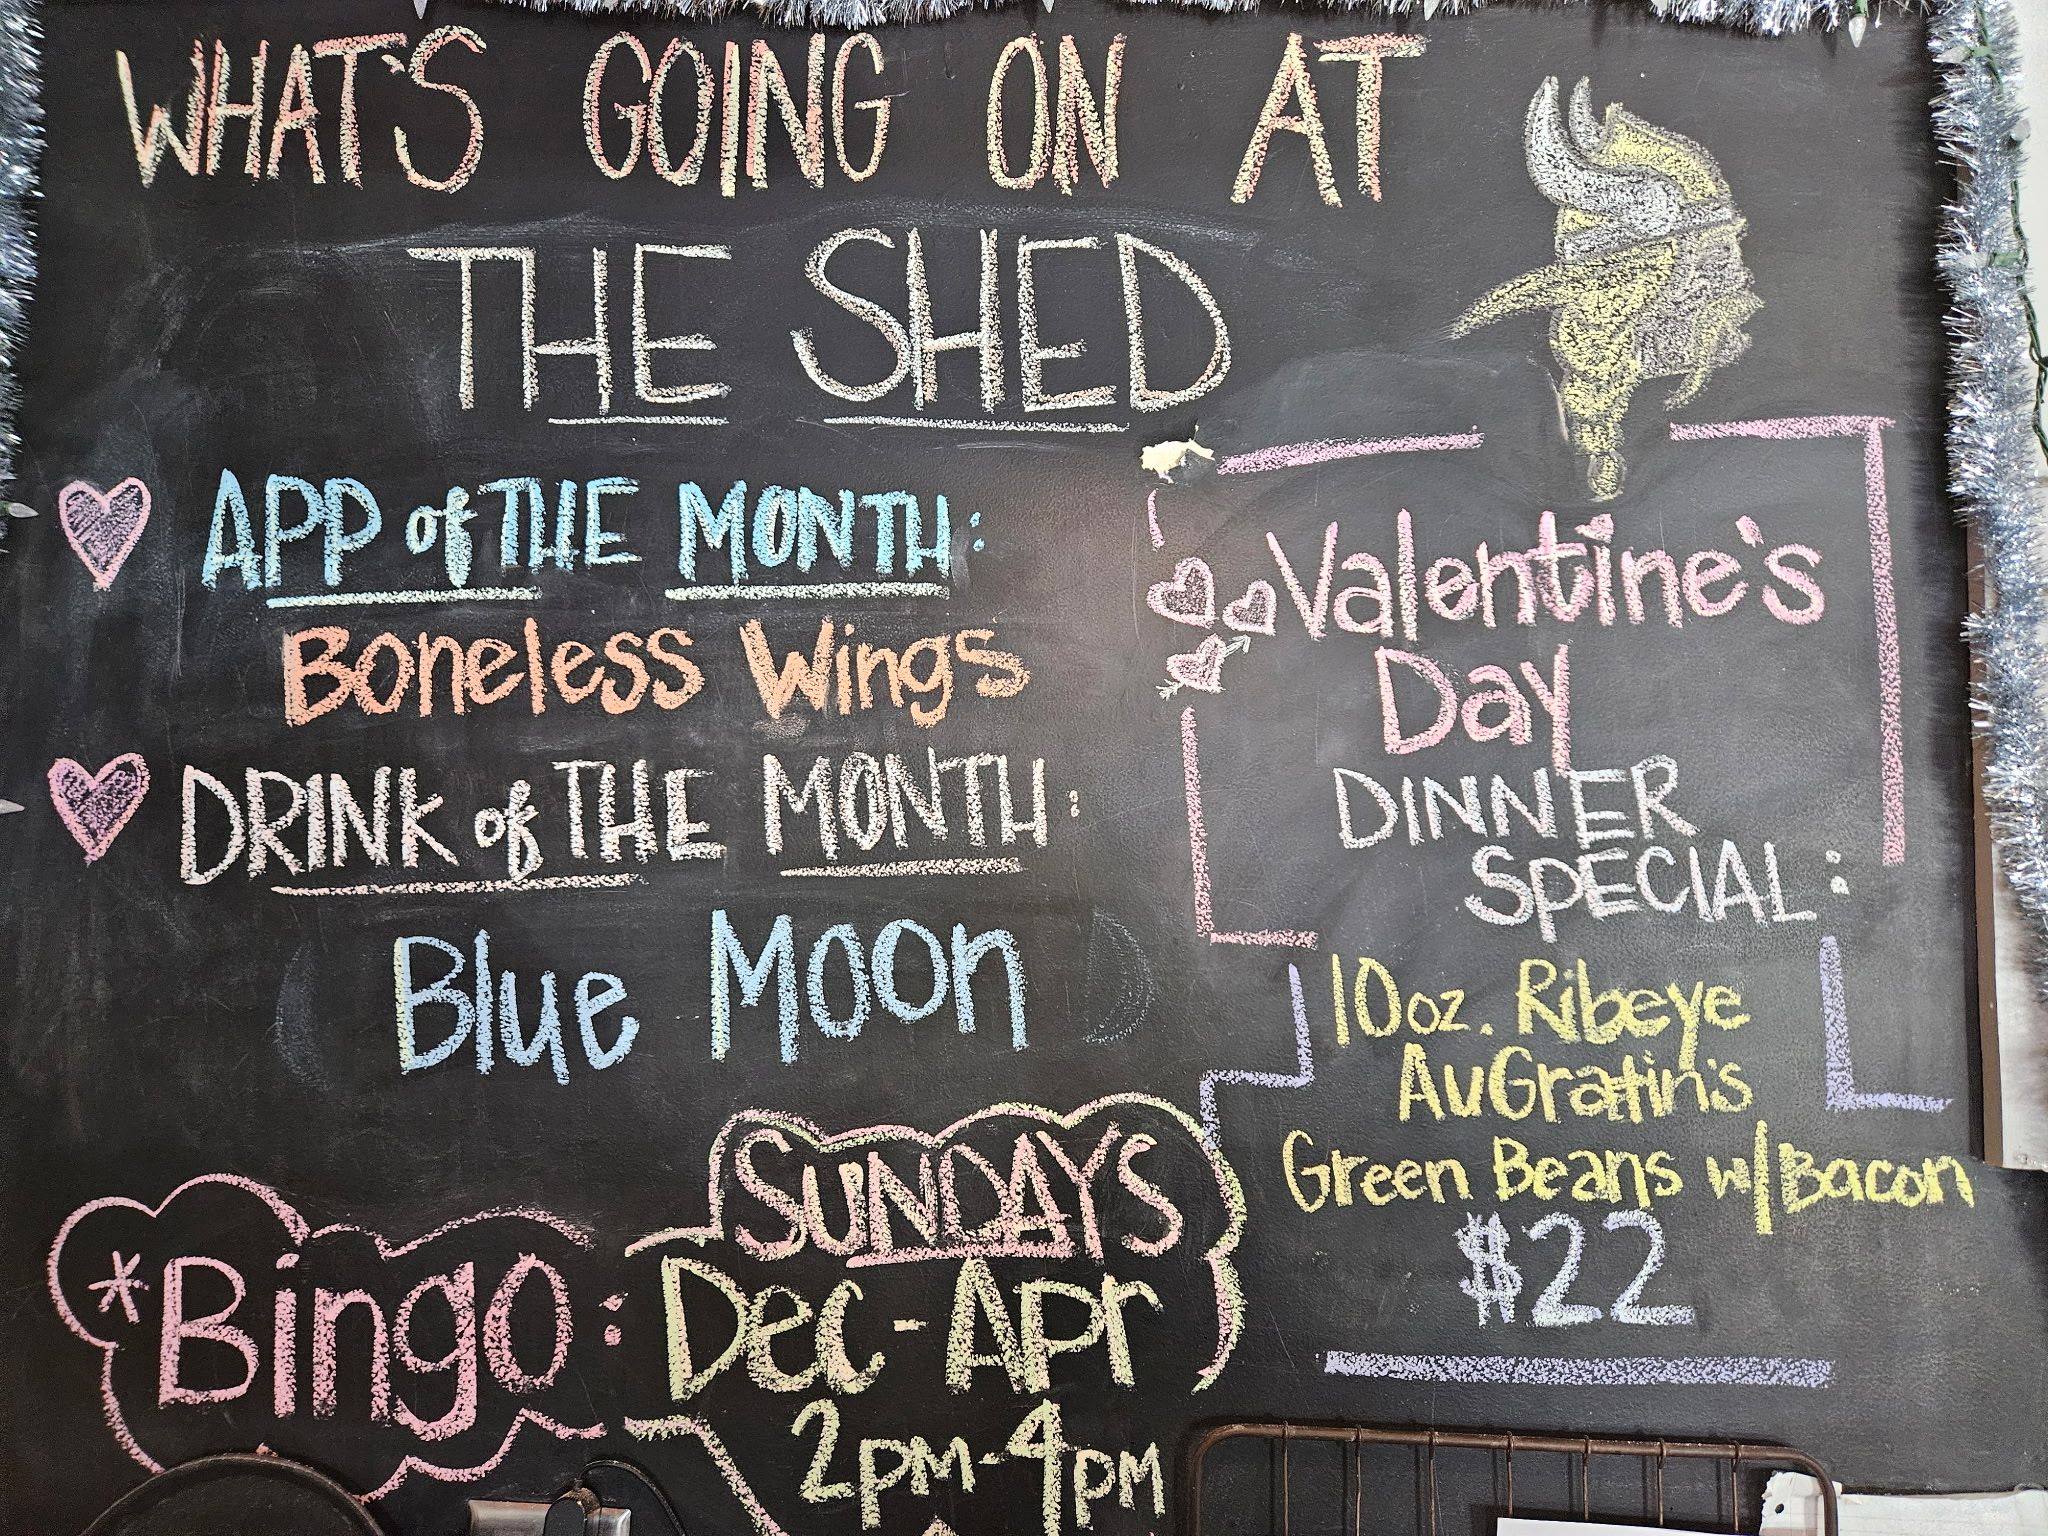 WHAT'S GOING ON AT
THE SHED
APP of THE MONTH:
Boneless Wings
DRINK of THE MONTH:
Blue Moon
*Bingo:
SUNDAYS
Dec-Apr
2PM-4PM
Valentine's
Day
DINNER
SPECIAL:
10oz. Ribeye
AuGratin's
Green Beans w/Bacon
$22